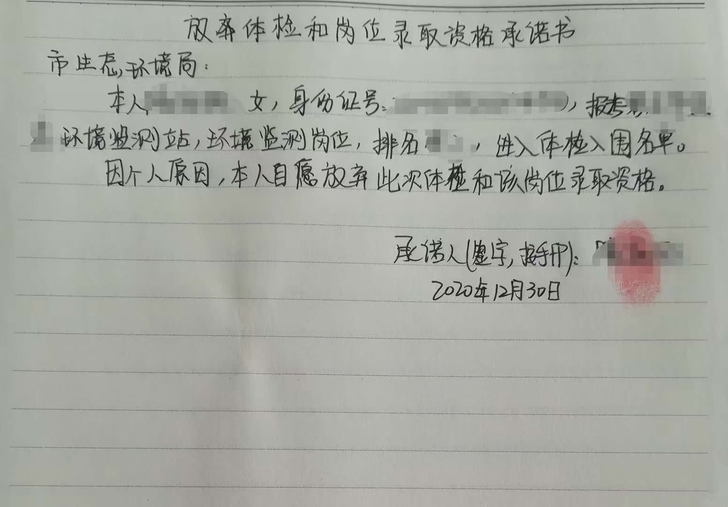 放弃体检和岗位录取资格承诺书
市生态环境局:
本人 女,身份证号: ,报考
环境监测站,环境监测岗位,排名 ,进入体检入围名单。
因个人原因,本人自愿放弃此次体检和该岗位录取资格。
承诺人(签字,按手印):
2020年12月30日